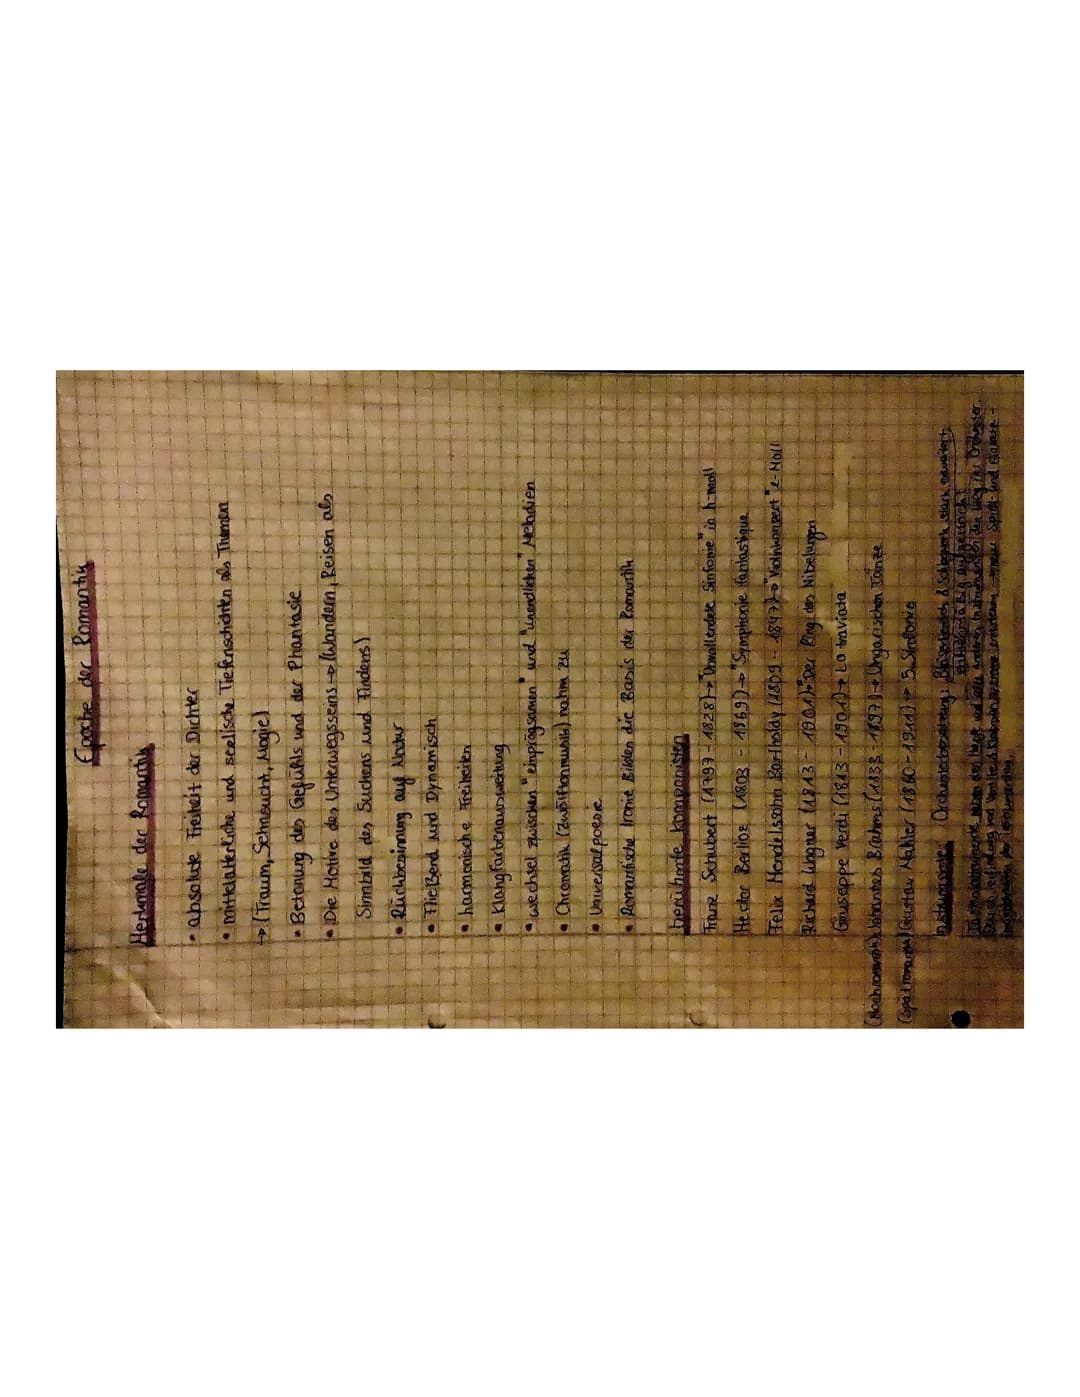 Epoche der Romantik
Merkmale der Romantik
• absolute Freiheit der Dichter
• mittelalterliche und seelische Tiefenschichten als Themen
→ (Traum, Sehnsucht, Magie)
• Betonung des Gefühls und der Phantasie
• Die Motive des Unterwegsseins → (Wandern, Reisen als
Sinnbild des Suchens und Findens)
• Rückbesinnung auf Natur
• Fließend und Dynamisch
• harmonische Freiheiten
• Klangfarbenausweitung
• wechsel zwischen "einprägsamen" und "unendlichen" Melodien
• Chromatik (Zwölftonmusik) nahm zu
• Universalpoesie
• Romantische Ironie Bilden die Basis der Romantik
berühmte Komponisten
Franz Schubert (1797 - 1828) → "Unvollendete Sinfonie" in h-moll
Hector Berlioz (1803 - 1969) → "Symphonie fantastique
Felix Mendelssohn Bartholdy (1809 - 1847) → "Violinkonzert" e-Moll
Richard Wagner (1813 - 1901) → "Der Ring des Nibelungen
Giuseppe Verdi (1813 - 1901) → La traviata
(Hochromantik) Johannes Brahms (1833 - 1897) → Ungarischen Tänze
(Spätromantik) Gustav Mahler (1860 - 1911) → 5. Sinfonie
Instrumente Orchesterbesetzung: & Schlagwerk stark erweitert,
und alle anderen Instrumente der Weg ins Orchester,
Durch und entstehen neue Spiel- und